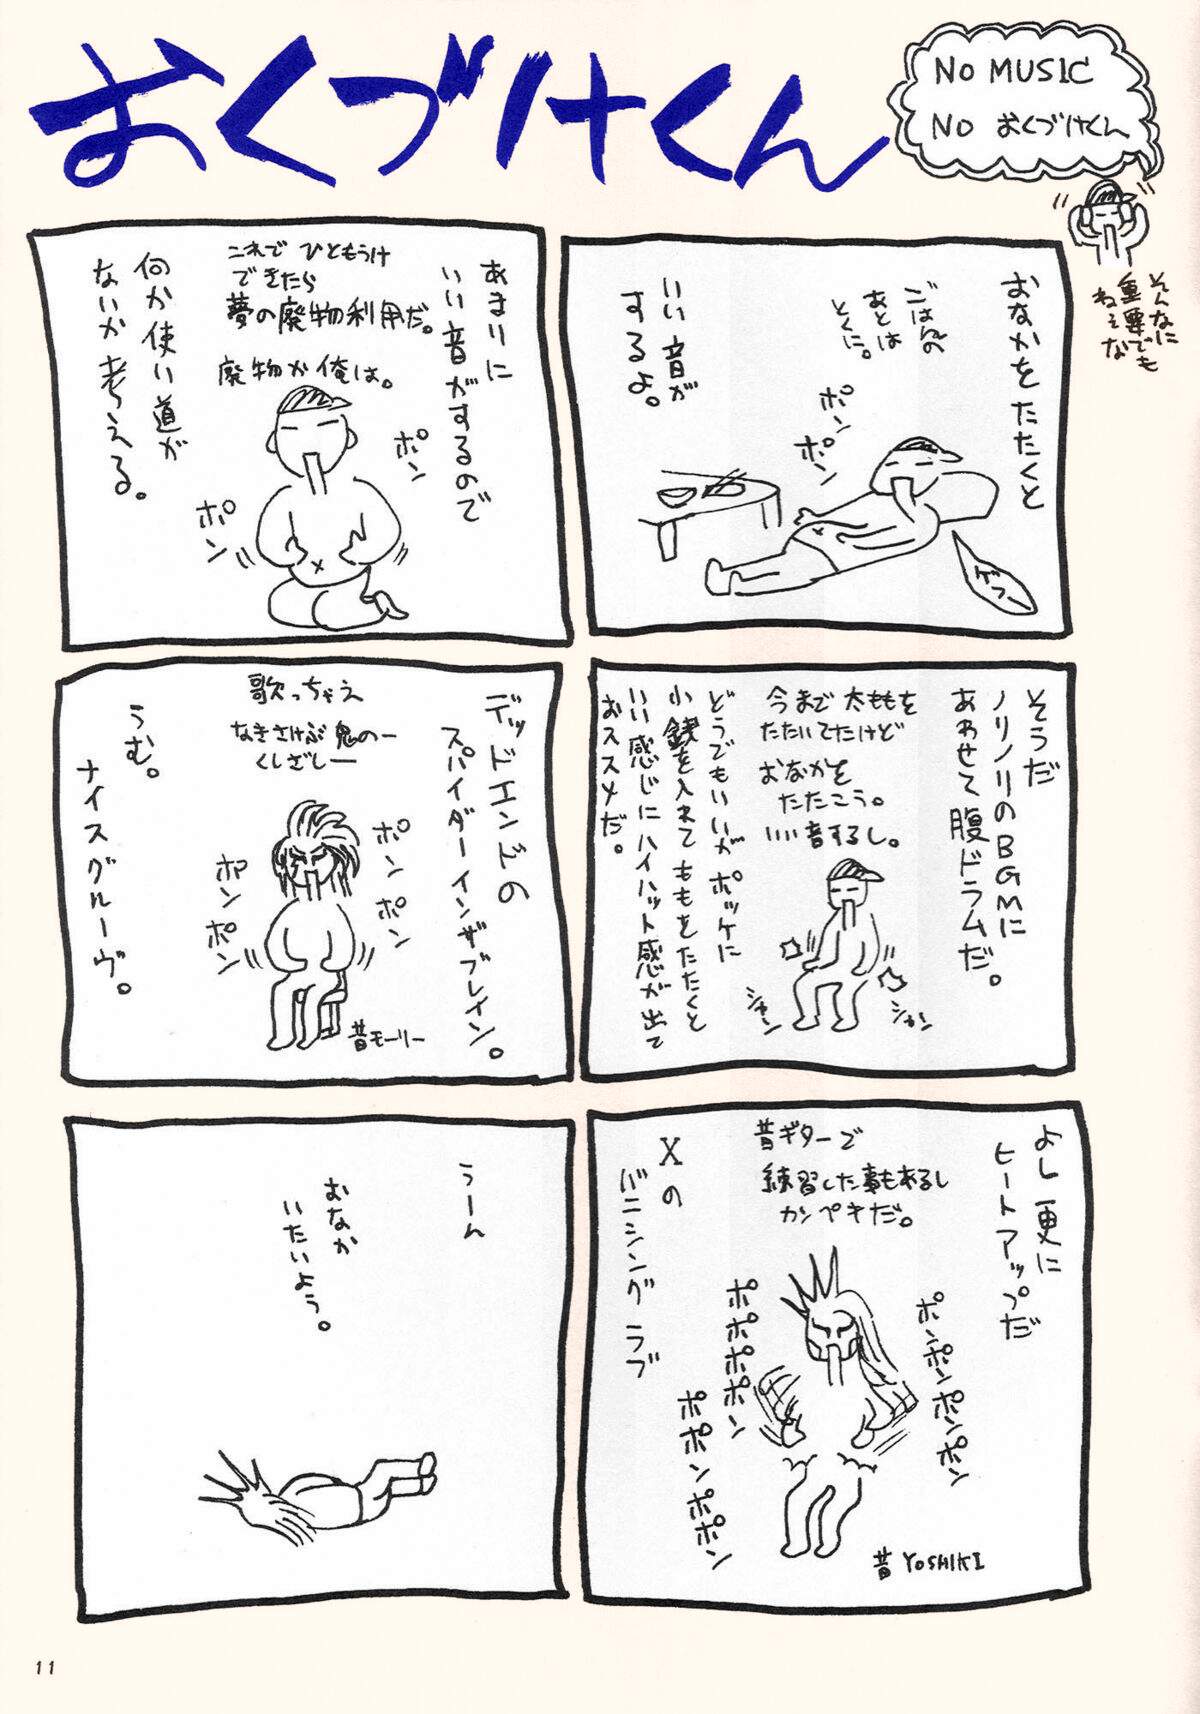 おくづけくん
NO MUSIC
NO おくづけくん
そんなに
重要でも
ねえな
おなかをたたくと
ごはんの
あとは
とくに。
いい音が
するよ。
ポン
ポン
ゲフー
あまりに
いい音がするので
これで ひともうけ
できたら
夢の廃物利用だ。
廃物か俺は。
何か使い道が
ないか考える。
ポン
ポン
そうだ
ノリノリのBGMに
あわせて腹ドラムだ。
今まで太ももを
たたいてたけど
おなかを
たたこう。
いい音するし。
どうでもいいがポッケに
小銭を入れてももをたたくと
いい感じにハイハット感が出て
おススメだ。
シャン
シャン
デッドエンドの
スパイダーインザブレイン。
歌っちゃえ
なきさけぶ鬼のー
くしざしー
うむ。
ナイスグルーヴ。
ポンポン
ポンポン
昔モーリー
よし更に
ヒートアップだ
昔ギターで
練習した事もあるし
カンペキだ。
Xの
バニシングラブ
ポンポンポンポン
ポポポポン
ポポンポポン
昔YOSHIKI
うーん
おなか
いたいよう。
11